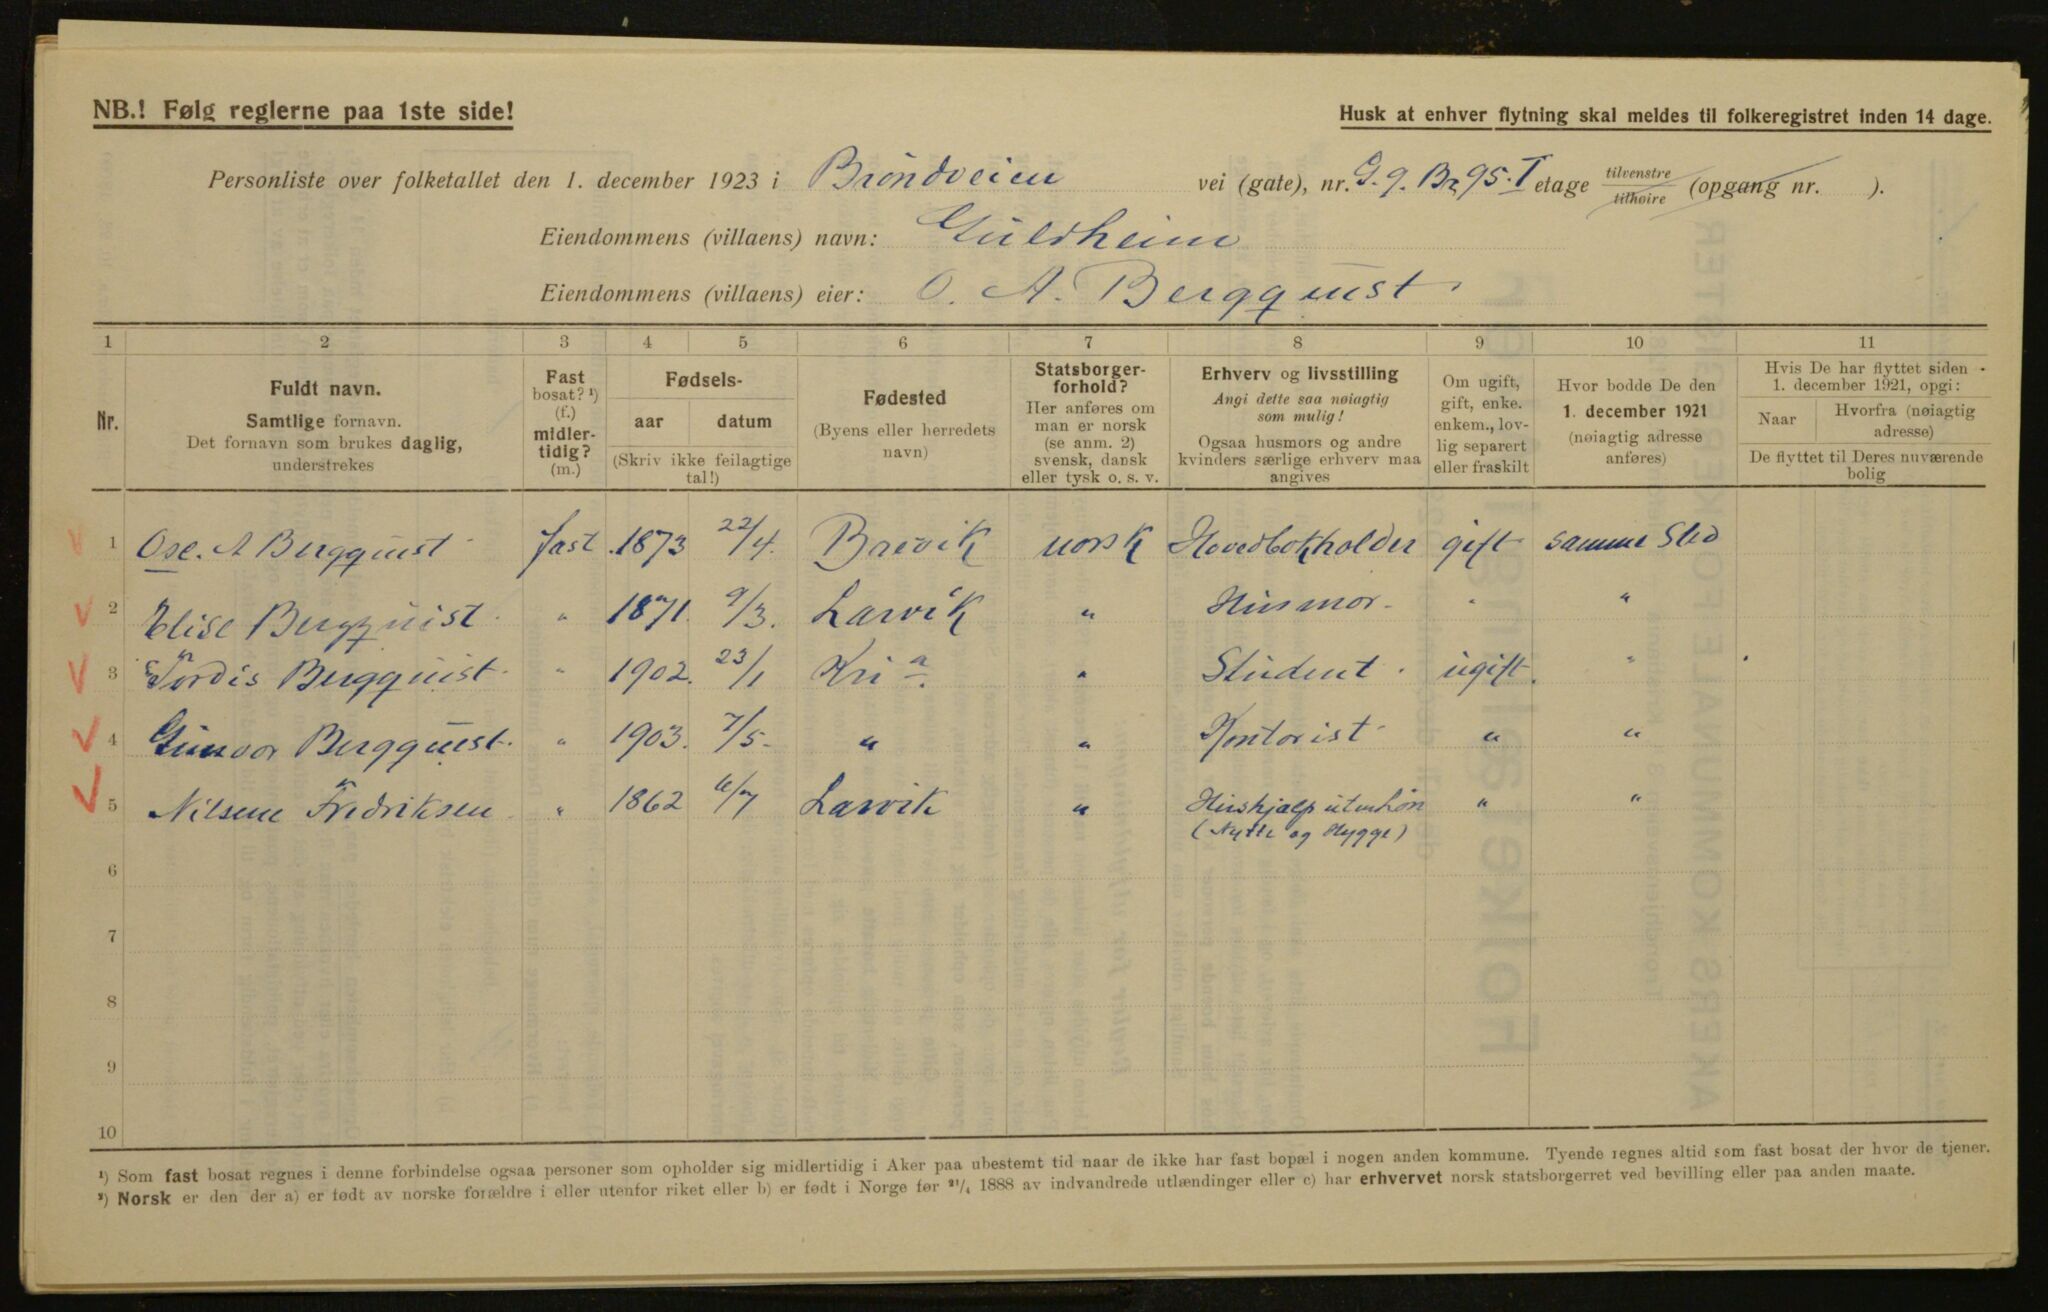 NB.! Følg reglerne paa 1ste side!
Husk at enhver flytning skal meldes til folkeregistret inden 14 dage.
Personliste over folketallet den 1. december 1923 i Bröndveien vei (gate), nr. G. 9. Br 95. I etage tilvenstre tilhøire (opgang nr. ).
Eiendommens (villaens) navn: Guldheim
Eiendommens (villaens) eier: O. A. Bergquist.
1 2 3 4 5 6 7 8 9 10 11
Nr.
Fuldt navn.
Samtlige fornavn.
Det fornavn som brukes daglig,
understrekes
Fast
bosat? ¹)
(f.)
midler-
tidig?
(m.)
Fødsels-
aar datum
(Skriv ikke feilagtige
tal!)
Fødested
(Byens eller herredets
navn)
Statsborger-
forhold?
Her anføres om
man er norsk
(se anm. 2)
svensk, dansk
eller tysk o. s. v.
Erhverv og livsstilling
Angi dette saa nøiagtig
som mulig!
Ogsaa husmors og andre
kvinders særlige erhverv maa
angives
Om ugift,
gift, enke.
enkem., lov-
lig separert
eller fraskilt
Hvor bodde De den
1. december 1921
(nøiagtig adresse
anføres)
Hvis De har flyttet siden
1. december 1921, opgi:
Naar Hvorfra (nøiagtig
adresse)
De flyttet til Deres nuværende
bolig
1 Osc. A Bergquist fast 1873 22/4. Brevik norsk Hovedbokholder gift samme Sted
2 Elise Bergquist " 1871. 9/3. Larvik " Husmor - " "
3 Tordis Bergquist " 1902. 23/1 Kria. " Student. ugift. "
4 Gunvor Bergquist. " 1903. 7/5. " " Kontorist " "
5 Nilsene Fredriksen " 1862 6/7 Larvik " Hushjælp uten løn " "
(Nytte og Hygge)
6
7
8
9
10
¹) Som fast bosat regnes i denne forbindelse ogsaa personer som opholder sig midlertidig i Aker paa ubestemt tid naar de ikke har fast bopæl i nogen anden kommune. Tyende regnes altid som fast bosat der hvor de tjener.
²) Norsk er den der a) er født av norske forældre i eller utenfor riket eller b) er født i Norge før ²¹/₄ 1888 av indvandrede utlændinger eller c) har erhvervet norsk statsborgerret ved bevilling eller paa anden maate.